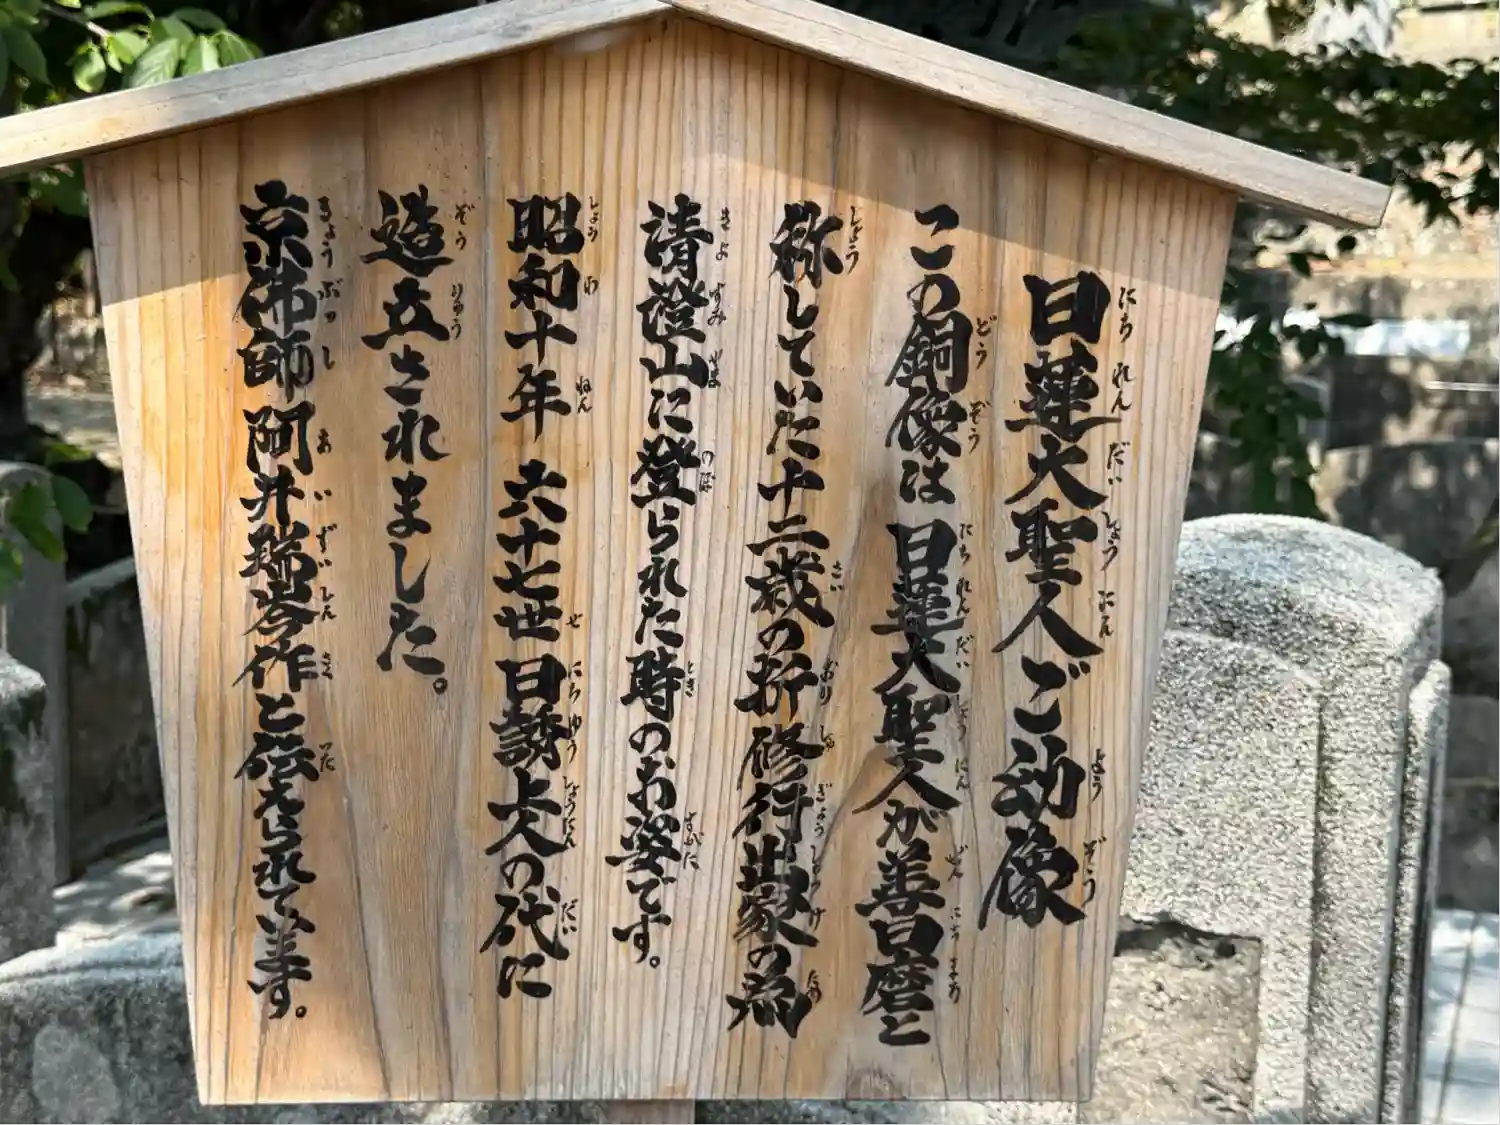 日蓮大聖人ご幼像
この銅像は日蓮大聖人が善日麿と
称していた十二歳の折修行出家の為
清澄山に登られた時のお姿です。
昭和十年 六十七世日誘上人の代に
造立されました。
京佛師 阿井瑞岑作と伝えられています。